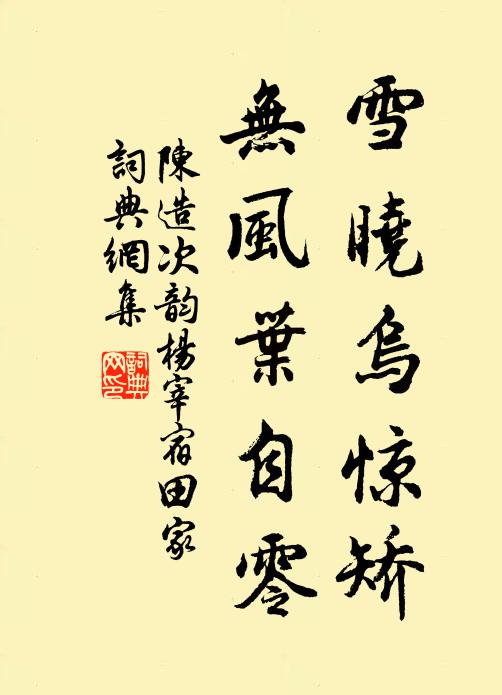 雪曉烏惊矫
無風葉自零
陳造次韵楊宰宿田家
詞典網集
詞典网印